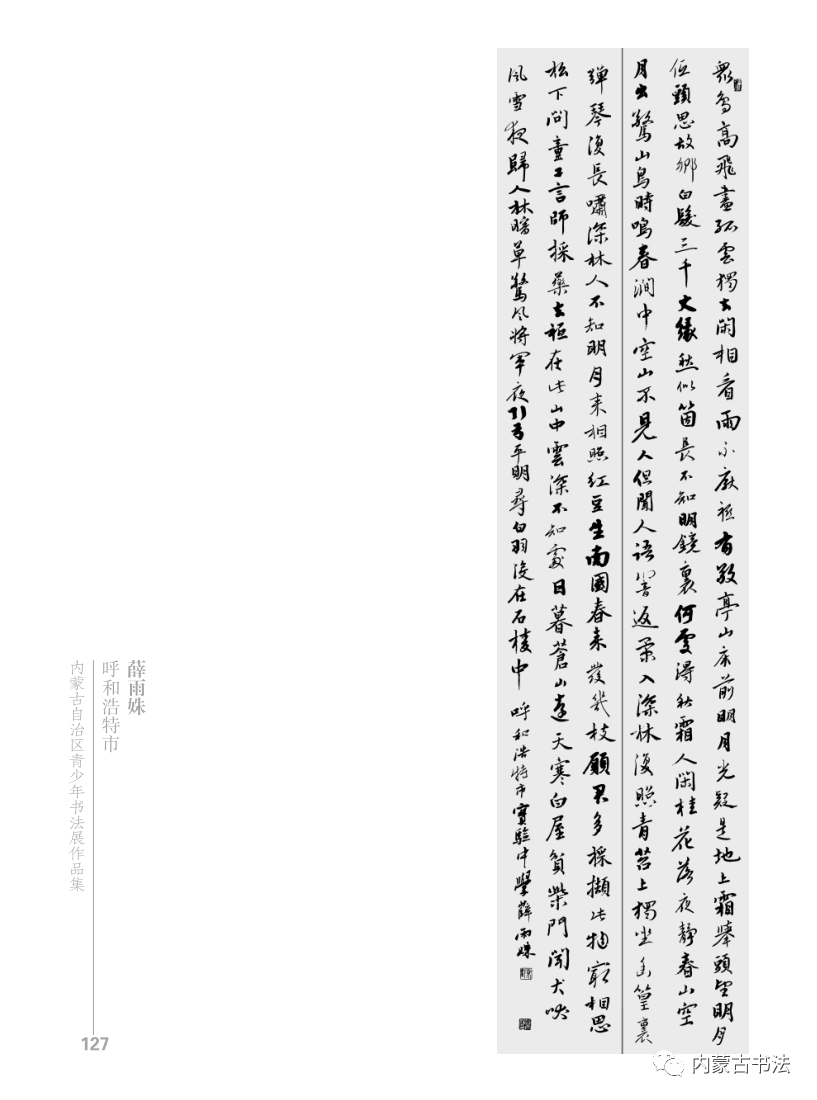 眾鳥高飛盡孤雲獨去閑相看兩不厭祗有敬亭山床前明月光疑是地上霜舉頭望明月
低頭思故鄉白髮三千丈緣愁似箇長不知明鏡裏何處得秋霜人閑桂花落夜靜春山空
月出驚山鳥時鳴春澗中空山不見人但聞人語響返景入深林復照青苔上獨坐幽篁裏
彈琴復長嘯深林人不知明月來相照紅豆生南國春來發幾枝願君多採擷此物最相思
松下問童子言師採藥去祗在此山中雲深不知處日暮蒼山遠天寒白屋貧柴門聞犬吠
風雪夜歸人林暗草驚風將軍夜引弓平明尋白羽沒在石棱中 呼和浩特市實驗中學薛雨姝
薛雨姝
呼和浩特市
内蒙古自治区青少年书法展作品集
127
内蒙古书法